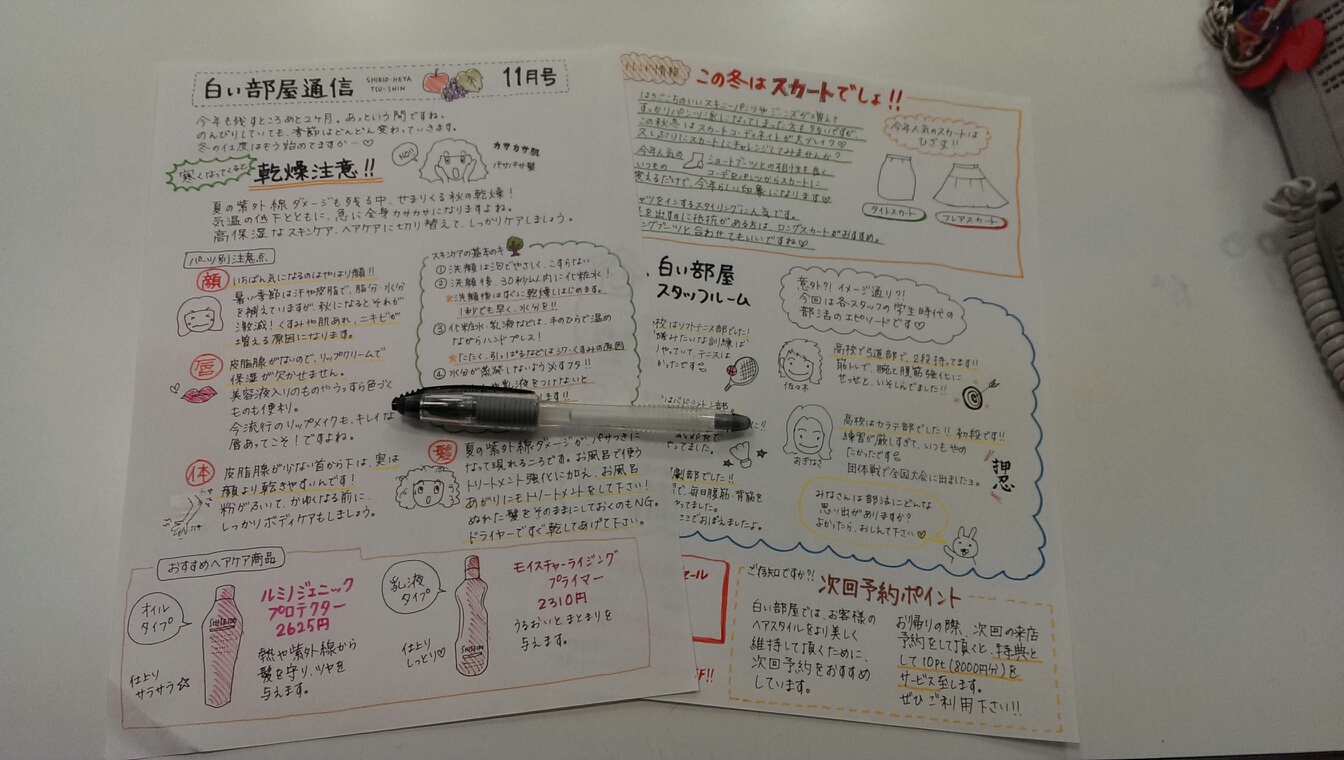 白い部屋通信
SHIROI・HEYA
TSU-SHIN
11月号
今年も残すところあと2ヶ月。あっという間ですね。
のんびりしていても、季節はどんどん変わっていきます。
冬の仕度はもう始めてますか…♡
寒くなってくると
乾燥注意!!
NO!!
カサカサ肌
パサパサ髪
夏の紫外線ダメージも残る中、せまりくる秋の乾燥!
気温の低下とともに、急に全身カサカサになりますよね。
高保湿なスキンケア、ヘアケアに切り替えて、しっかりケアしましょう。
パーツ別注意点
顔
いちばん気になるのはやはり顔!!
暑い季節は汗や皮脂で、脂分・水分
を補えていますが、秋になるとそれが
激減!くすみや肌あれ、ニキビが
増える原因になります。
唇
皮脂腺がないので、リップクリームで
保湿が欠かせません。
美容液入りのものやうっすら色づく
ものも便利。
今流行のリップメイクも、キレイな
唇あってこそ!ですよね。
体
皮脂腺が少ない首から下は、実は
顔より乾きやすいんです!
粉がういて、かゆくなる前に、
しっかりボディケアもしましょう。
スキンケアの基本のキ
① 洗顔は泡でやさしく、こすらない
② 洗顔後、30秒以内に化粧水!
★洗顔後はすぐに乾燥しはじめます。
1秒でも早く、水分を!!
③ 化粧水・乳液などは、手のひらで温め
ながらハンドプレス!
★たたく、引っぱるなどはシワ・くすみの原因
④ 水分が蒸発しないよう必ずフタ!!
や乳液をつけないと
します!!
髪
夏の紫外線ダメージが、パサつきに
なって現れるころです。お風呂で使う
トリートメント強化に加え、お風呂
あがりにもトリートメントをして下さい!
ぬれた髪をそのままにしておくのもNG。
ドライヤーですぐ乾してあげて下さい。
おすすめヘアケア商品
オイル
タイプ
仕上り
サラサラ☆
ルミノジェニック
プロテクター
2625円
熱や紫外線から
髪を守り、ツヤを
与えます。
乳液
タイプ
仕上り
しっとり♡
モイスチャーライジング
プライマー
2310円
うるおいとまとまりを
与えます。
この冬はスカートでしょ!!
はきごこちのいいスキニーパンツやジーンズが増えて
すっかりパンツ派になってしまった方も多いですが、
この秋冬はスカートコーディネイトが大ブレイク♡
久しぶりにスカートにチャレンジしてみませんか?
今年人気の ショートブーツとの相性も良く
いつもの コーデをパンツからスカートに
変えるだけで、今年らしい印象になります♡
ツをインするスタイリングに人気です。
を出すに抵抗がある方は、ロングスカートがおすすめ。
ングブーツと合わせてもいいですね♡
今年人気のスカートは
ひざ丈!!
タイトスカート
フレアスカート
白い部屋
スタッフルーム
意外?!イメージ通り?!
今回は各スタッフの学生時代の
部活のエピソードです♡
校はソフトテニス部でした!
みたいな訓練ば
やっていて、テニスは
かったです
高校で弓道部で、2段持ってます!!
筋トレで、腕と腹筋強化に
せっせと、いそしんでました!!
佐々木
はバドミントン部
てました。
高校はカラテ部でした!!初段です!!
練習が厳しすぎて、いつもやめ
たかったです
団体戦で全国大会に出ました
押忍
劇部でした!!
で、毎日腹筋・背筋を
ってました。
ここでおぼえましたよ。
みなさんは部活にどんな
思い出がありますか?
よかったら、おしえて下さい♡
セール
FF!!
ご存知ですか?!
次回予約ポイント
白い部屋では、お客様の
ヘアスタイルをより美しく
維持して頂くために、
次回予約をおすすめ
しています。
お帰りの際、次回の来店
予約をして頂くと、特典と
して10Pt(8000円分)を
サービス至します。
ぜひご利用下さい!!